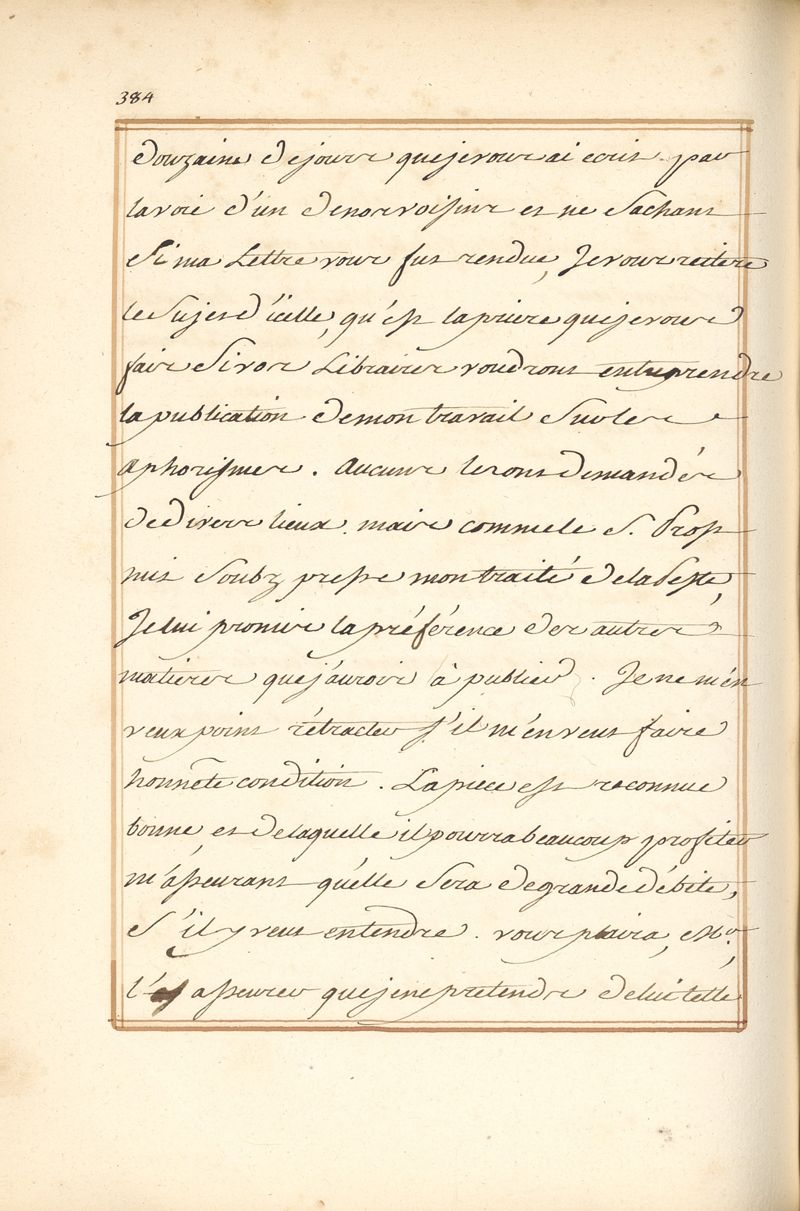 384
douzaine de jours que je vous ai ecrit par
la voie d'un de nos voisins et ne sachant
si ma Lettre vous fut rendue, Je vous reitere
le sujet d'icelle, qu'est la priere que je vous
fais si vos Libraires voudront entreprendre
la publication de mon travail sur les
aphorismes. Aucuns les ont demandés
de divers lieux. mais comme le S. Prost
mit soubz presse mon traité de la Peste,
Je lui promis la préférence des autres
matieres que j'aurois à publier. Je ne m'en
veux point rétracter s'il m'en veut faire
honnête condition. La piece est reconnue
bonne, et de laquelle il pourra beaucoup profiter
m'asseurant qu'elle sera de grande débite,
s'il y veut entendre. vous plaira, Mr.,
l'asseurer que je ne pretends de lui telle